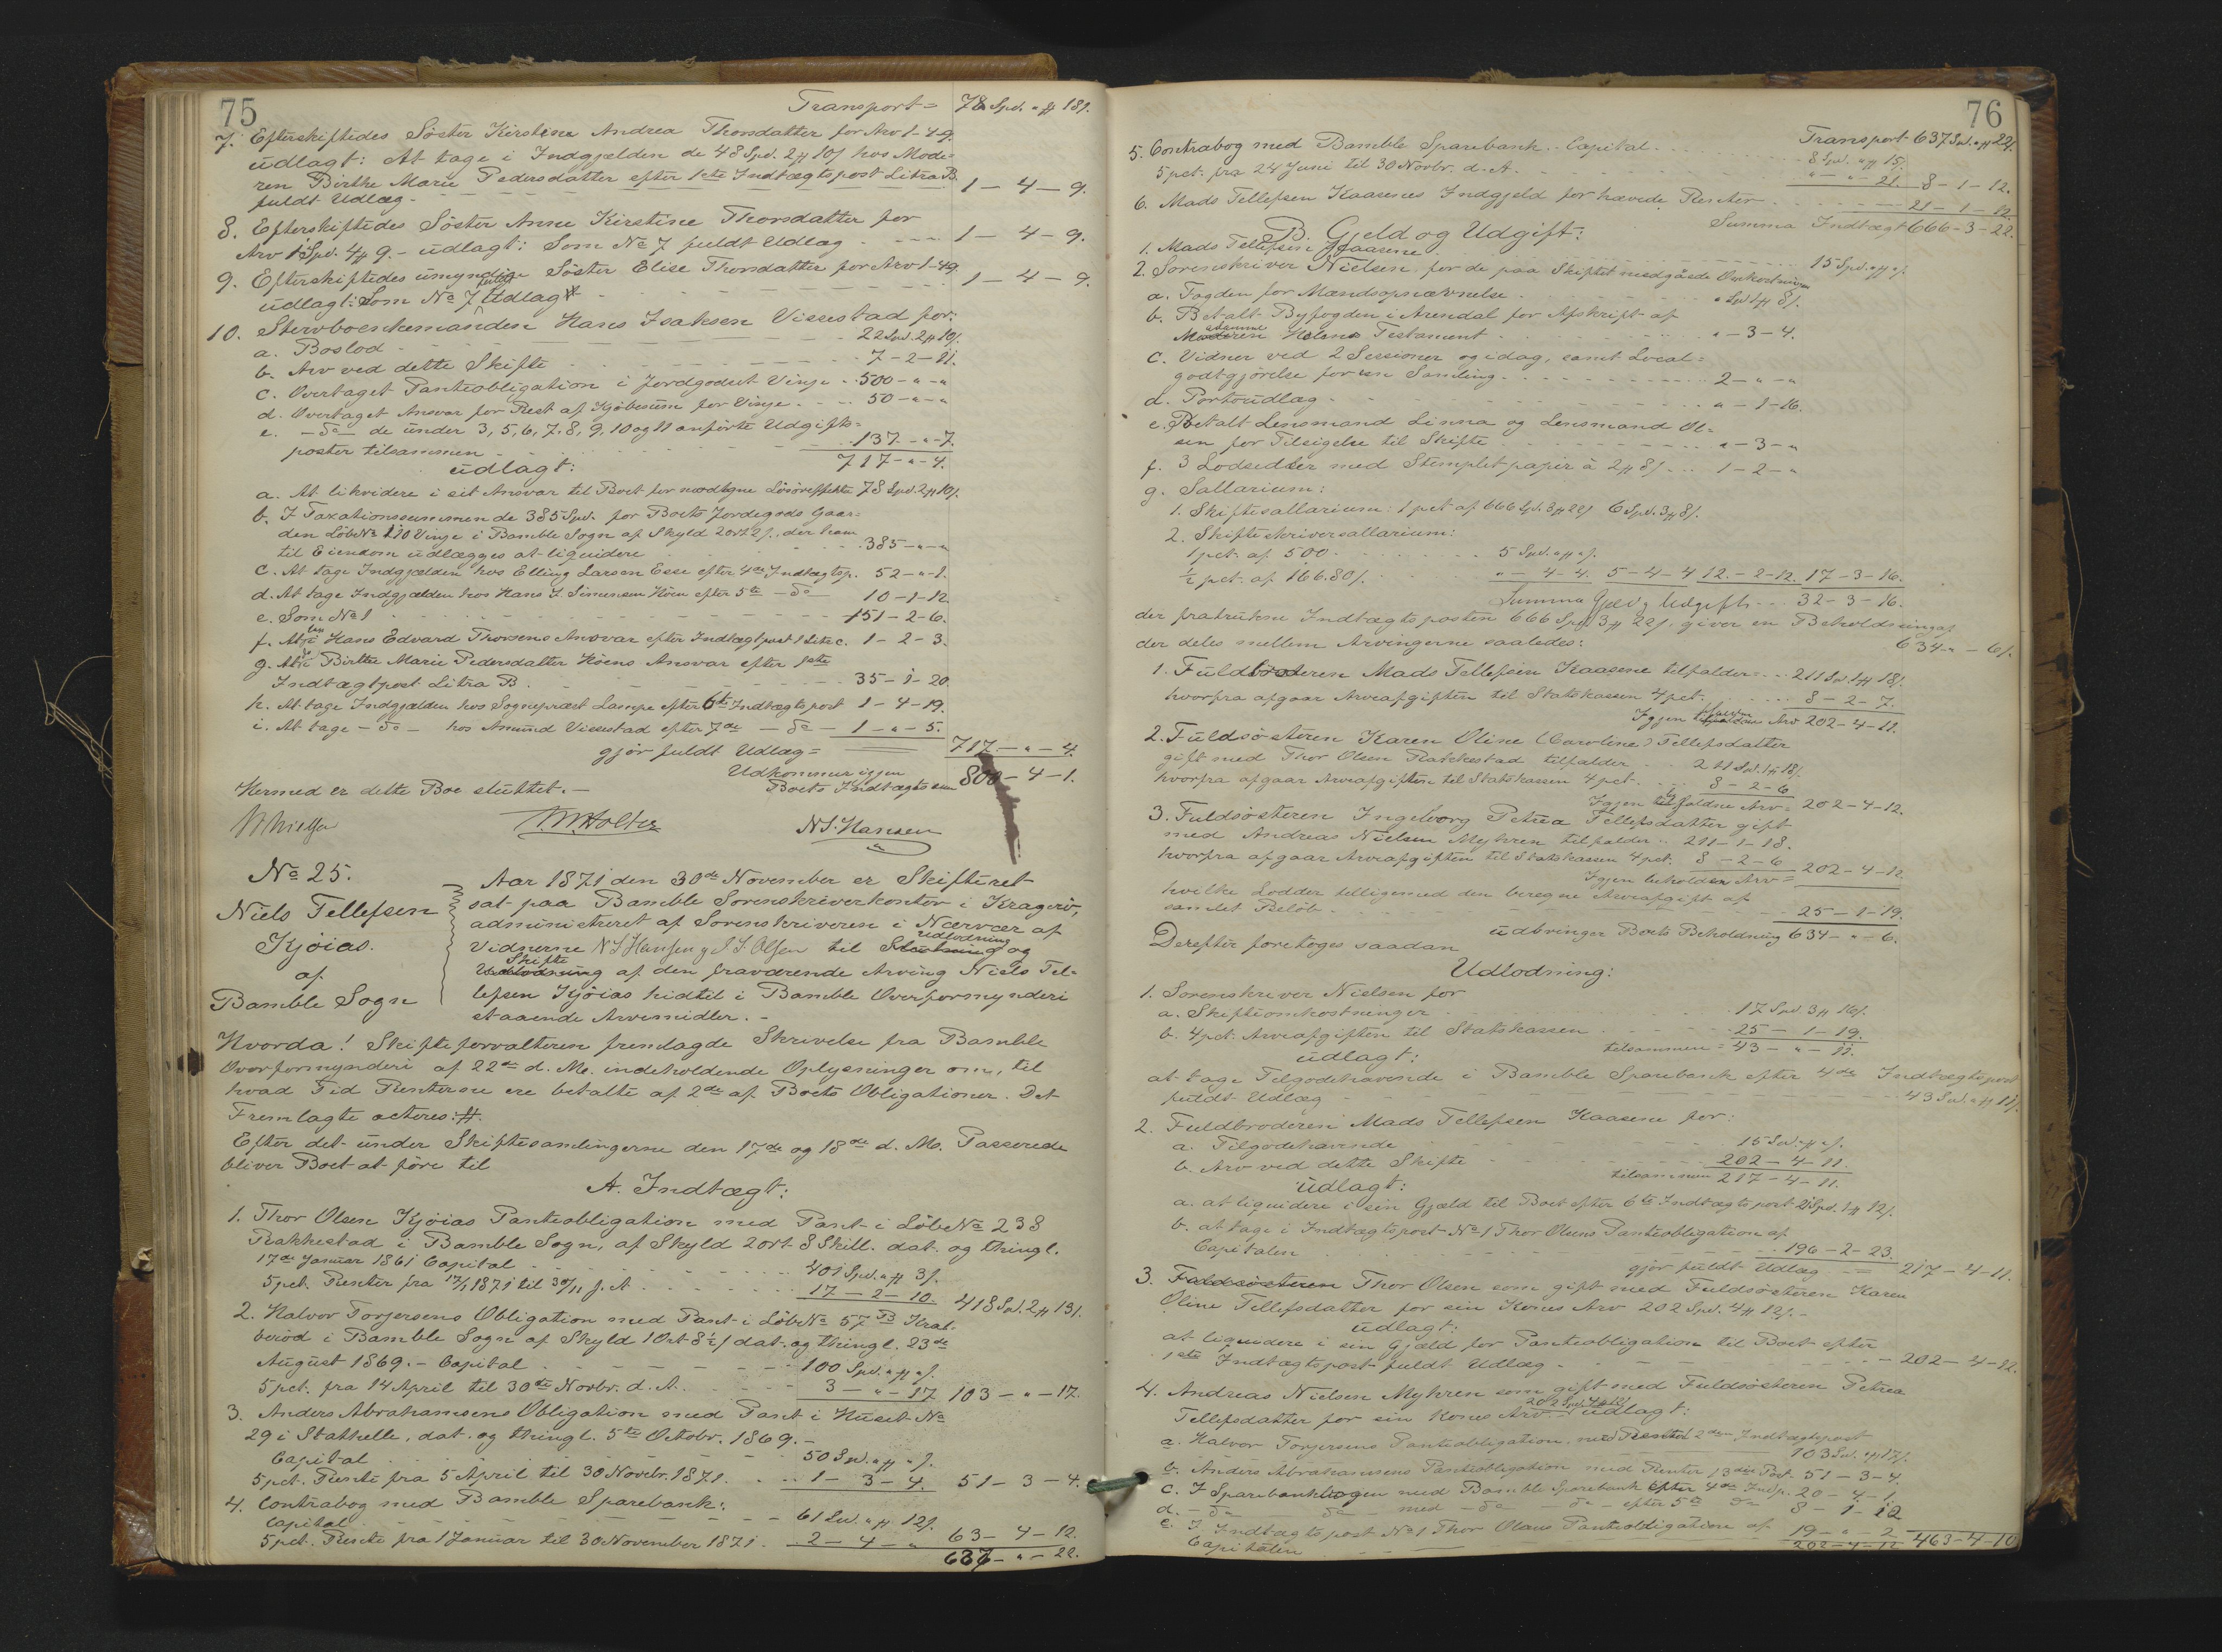 75
Transport = 78 Spd. " ₰ 18 ẞ.
7. Efterskiftedes Søster Kirstine Andrea Thorsdatter for Arv 1-4-9.
udlagt: At tage i Indgjælden de 48 Spd. 2 ₰ 10 ẞ hos Mode=
ren Birthe Marie Pedersdatter efter 1ste Indtægtspost Litra B
fuldt Udlæg - 1 - 4 - 9.
8. Efterskiftedes Søster Anne Kirstine Thorsdatter for
Arv 1 Spd. 4 ₰ 9. - udlagt: Som No 7 fuldt Udlæg - 1 - 4 - 9.
9. Efterskiftedes umyndige Søster Elise Thorsdatter for Arv 1-4-9
udlagt: Som No 7 fuldt Udlæg - 1 - 4 - 9.
10. Stervboenkemanden Hans Isaksen Vissestad for:
a. Boslod - 22 Spd. 2 ₰ 10 ẞ.
b. Arv ved dette Skifte - 7 - 2 - 11.
c. Overtaget Panteobligation i Jordgodset Vinje - 500 - " - "
d. Overtaget Ansvar for Rest af Kjøbesum for Vinje - 50 - " - "
e. - do - de under 3, 5, 6, 7, 8, 9, 10 og 11 anførte Udgifts=
poster tilsammen - 137 - " - 7.
717 - " - 4.
udlagt:
a. At likvidere i sit Ansvar til Boet for modtagne Løsøreffekter 78 Spd. 2 ₰ 10 ẞ.
b. I Taxationssummen de 385 Spd. for Boets Jordegods Gaar=
den Løbe No 110 Vinje i Bamble Sogn af Skyld 2 ort 2 ẞ., der ham
til Eiendom udlægges at liquidere - 385 - " - "
c. At tage Indgjælden hos Elling Larsen Esse efter 4de Indtægtsp. 52 - " - 1.
d. At tage Indgjælden hos Hans J. Simonsen Høen efter 5te - do - 10 - 1 - 12
e. Som No 1 - 151 - 2 - 6.
f. At tage Hans Edvard Thorsens Ansvar efter Indtægtpost 1 Litr. c. 1 - 2 - 3.
g. At do Birthe Marie Pedersdatter Höens Ansvar efter 1ste
Indtægtpost Litra B. - 35 - 1 - 20
h. At tage Indgjælden hos Sognepræst Lampe efter 6te Indtægtspost 1 - 4 - 19.
i. At tage - do - hos Amund Vissestad efter 7de - do - 1 - " - 5.
gjør fuldt Udlæg = 717 - " - 4.
Udkommer igjen
Boets Indtægtssum 800 - 4 - 1.
Hermed er dette Boe sluttet. -
N. S. Hansen
No 25.
Niels Tellefsen
Kjøias.
af
Bamble Sogn
Aar 1871 den 30de November er Skifteret
sat paa Bamble Sorenskriverkontor i Kragerø,
administreret af Sorenskriveren i Nærvær af
Vidnerne N S Hansen og J. S. Olsen til Slutning udlodning og
Udlodning Skifte af den fraværende Arving Niels Tel=
lefsen Kjøias hidtil i Bamble Overformynderi
staaende Arvemidler. -
Hvorda! Skifteforvalteren fremlagde Skrivelse fra Bamble
Overformynderi af 22de d. M. indeholdende Oplysninger om, til
hvad Tid Renterne ere betalte af 2de af Boets Obligationer. Det
Fremlagte acteres: #.
Efter det under Skiftesamlingerne den 17de og 18de d. M. Passerede
bliver Boet at føre til
A. Indtægt:
1. Thor Olsen Kjøias Panteobligation med Pant i Løbe No 238
Rakkestad i Bamble Sogn, af Skyld 2 ort 8 Skill. dat. og thingl.
17de Januar 1861 Capital - 401 Spd. " ₰ 3 ẞ.
5 pct. Renter fra 17/1 1871 til 30/11 s. A. - 17 - 2 - 10. 418 Spd. 2 ₰ 13 ẞ.
2. Halvor Torjersens Obligation med Pant i Løbe No 57 B Kral-
berød i Bamble Sogn af Skyld 1 Ort 8½ ẞ dat. og thingl. 23de
August 1869. - Capital - 100 Spd. " ₰ " ẞ.
5 pct. fra 14 April til 30te Novbr. d. A. - 3 - " - 17 103 - " - 17.
3. Anders Abrahamsens Obligation med Pant i Huset No
29 i Stathelle, dat. og thingl. 5te Octobr. 1869. -
Capital - 50 Spd. " ₰ " ẞ.
5 pct. Rente fra 5 April til 30 Novbr. 1871. - 1 - 3 - 4. 51 - 3 - 4.
4. Contrabog med Bamble Sparebank:
Capital - 61 Spd. " ₰ 12 ẞ.
5 pct. Rente fra 1 Januar til 30 November 1871. 2 - 4 - " 63 - 4 - 12.
637 - " - 22.
76
Transport - 637 Spd. " ₰ 22 ẞ.
5. Contrabog med Bamble Sparebank. Capital - 8 Spd. " ₰ 15 ẞ.
5 pct. fra 24 Juni til 30 Novbr. d. A. - " - " - 21. 8 - 1 - 12.
6. Mads Tellefsen Kaasenes Indgjeld for hævede Renter - 21 - 1 - 12.
Summa Indtægt 666 - 3 - 22.
B. Gjeld og Udgift:
1. Mads Tellefsen Kaasene - 15 Spd. " ₰ " ẞ.
2. Sorenskriver Nielsen for de paa Skiftet medgåede Omkostninger
a. Fogden for Mændsopnævnelse - " Spd. 1 ₰ 8 ẞ.
b. Betalt Byfogden i Arendal for Afskrift af
Helene Testament - " - 3 - 4.
c. Vidner ved 2 Sessioner og idag, samt Local=
godtgjørelse for en Samling - 2 - " - "
d. Portoudlæg - " - 1 - 16.
e. Betalt Lensmand Linna og Lensmand Ol=
sen for Tilsigelse til Skifte - " - 3 - "
f. 3 Lodsedler med Stemplet papir à 2 ₰ 8 ẞ - 1 - 2 - "
g. Sallarium:
1. Skiftesallarium: 1 pct af 666 Spd. 3 ₰ 22 ẞ 6 Spd. 3 ₰ 8 ẞ.
2. Skifteskriversallarium:
1 pct. af 500 - 5 Spd. " ₰ " ẞ.
½ pct. af 166.80 ẞ. " - 4 - 4. 5 - 4 - 4 12. - 2 - 12. 17 - 3 - 16.
Summa Gjeld og Udgift - 32 - 3 - 16.
der fratrukne Indtægtsposten 666 Spd. 3 ₰ 22 ẞ. giver en Beholdning af
634 - " - 6 ẞ.
der deles mellem Arvingerne saaledes:
1. Fuldbroderen Mads Tellefsen Kaasene tilfalder - 211 Spd. 1 ₰ 18 ẞ.
hvorfra afgaar Arveafgiften til Statskassen 4 pct. - 8 - 2 - 7.
Igjen Arv 202 - 4 - 11.
2. Fuldsøsteren Karen Oline (Caroline) Tellefsdatter
gift med Thor Olsen Rakkestad tilfalder - 211 Spd. 1 ₰ 18 ẞ.
hvorfra afgaar Arveafgiften til Statskassen 4 pct. - 8 - 2 - 6
Igjen tilfalden Arv = 202 - 4 - 12.
3. Fuldsøsteren Ingeborg Petrea Tellefsdatter gift
med Andreas Nielsen Myhren tilfalder - 211 - 1 - 18.
hvorfra afgaar Arveafgiften til Statskassen 4 pct. 8 - 2 - 6
Igjen beholden Arv = 202 - 4 - 12
hvilke Lodder tilligemed den beregne Arveafgift af
samlet Beløb - 25 - 1 - 19.
udbringer Boets Beholdning 634 - " - 6.
Derefter foretoges saadan
Udlodning:
1. Sorenskriver Nielsen for
a. Skifteomkostninger - 17 Spd. 3 ₰ 16 ẞ.
b. 4 pct. Arveafgiften til Statskassen - 25 - 1 - 19.
tilsammen = 43 - " - 11.
udlagt:
at tage Tilgodehavende i Bamble Sparebank efter 4de Indtægtspost
fuldt Udlæg - 43 Spd. " ₰ 11 ẞ.
2. Fuldbroderen Mads Tellefsen Kaasene for:
a. Tilgodehavende - 15 Spd. " ₰ " ẞ.
b. Arv ved dette Skifte - 202 - 4 - 11.
tilsammen 217 - 4 - 11.
udlagt:
a. at liquidere i sin Gjæld til Boet efter 6te Indtægtspost 21 Spd. 1 ₰ 12 ẞ.
b. at tage i Indtægtspost No 1 Thor Olsens Panteobligation af
Capitalen - 196 - 2 - 23.
gjør fuldt Udlæg - = 217 - 4 - 11.
3. Fuldsøsteren Thor Olsen som gift med Fuldsøsteren Karen
Oline Tellefsdatter for sin Kones Arv 202 Spd. 4 ₰ 12 ẞ. -
udlagt:
at liquidere i sin Gjæld for Panteobligation til Boet efter
1ste Indtægtspost fuldt Udlæg - 202 - 4 - 12.
4. Andreas Nielsen Myhren som gift med Fuldsøsteren Petrea
Tellefsdatter for sin Kones Arv 202 Spd. 4 ₰ 12 udlagt:
a. Halvor Torjersens Panteobligation med Renter 2den Indtægtspost
103 Spd. " ₰ 17 ẞ.
b. Anders Abrahamsens Panteobligation med Renter 3die Post. 51 - 3 - 4.
c. I Sparebankbogen med Bamble Sparebank efter 4de Indtp. 20 - 4 - 1
d. - do - do - med - do - do - efter 5te do 8 - 1 - 12
e. I Indtægtspost No 1 Thor Olsens Panteobligation af
Capitalen - 19 - " - 2
202 - 4 - 12 463 - 4 - 10